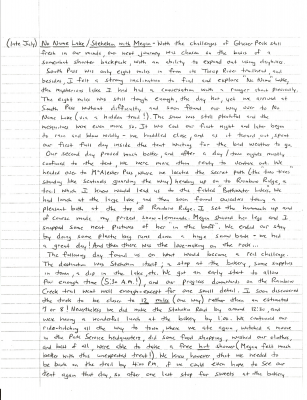 (late July) No Name Lake / Stehekin with Megan - With the challenges of Glacier Peak still
fresh in our minds our next journey was chosen on the basis of a
somewhat shorter backpack, with an ability to expand out using dayhikes.
South Pass was only eight miles in from its Twisp River trailhead, and
besides, I felt a strong inclination to find and explore "No Name" Lake,
the mysterious lake I had had a conversation with a ranger about previously.
The eight miles was still tough enough, the day hot, yet we arrived at
South Pass without difficulty and soon found our way over to No
Name Lake (via a hidden trail!). The snow was still plentiful and the
mosquitoes were even more so. It was our first night and later began
to rain and blow mildly - we huddled close and so it turned out, spent
our first full day inside the tent waiting for the bad weather to go.
Our second day proved much better, and after a day / two nights mostly
confined to the tent we were more than ready to venture out. We
headed over to McAlester Pass, where we located the secret path (the two trees
standing like sentinels guarding the way) heading up on to Rainbow Ridge, a
trail which I knew would lead up to the fabled "Bathwater" Lakes. We
had lunch at the large lake and then soon found ourselves taking a
pleasant break at the top of Rainbow Ridge. I set the hammock up and
of course made my prized snow-lemonade. Megan shaved her legs and I
snapped some great pictures of her in the buff. We ended our stay
by doing some plastic bag runs down a huge snow bank - we had
a great day! And then there was the love-making on the rock...
The following day found us on what would become a real challenge.
The destination was Stehekin itself, a stop at the bakery, some supplies
in town, a dip in the lake, etc. We got an early start to allow
for enough time (5:30 A.M.!), and our progress downwards on the Rainbow
Creek trail went well enough - except for one small detail. I soon discovered
the trek to be closer to 12 miles (one way) rather than an estimated
7 or 8! Nevertheless we did make the Stehekin Road by around 12:30, and
were having a wonderful lunch at the bakery by 1:00. We continued our
ride-hitching all the way to town, where we ate again, watched a movie
in the Park Service headquarters, did some food shopping, washed our clothes,
and best of all, were able to take a free hot shower (Megan felt much
better with this unexpected treat!). We knew however that we needed to
be back on the trail by 4:00 P.M. if we could even hope to see our
tent again that day, so after one last stop for sweets at the bakery